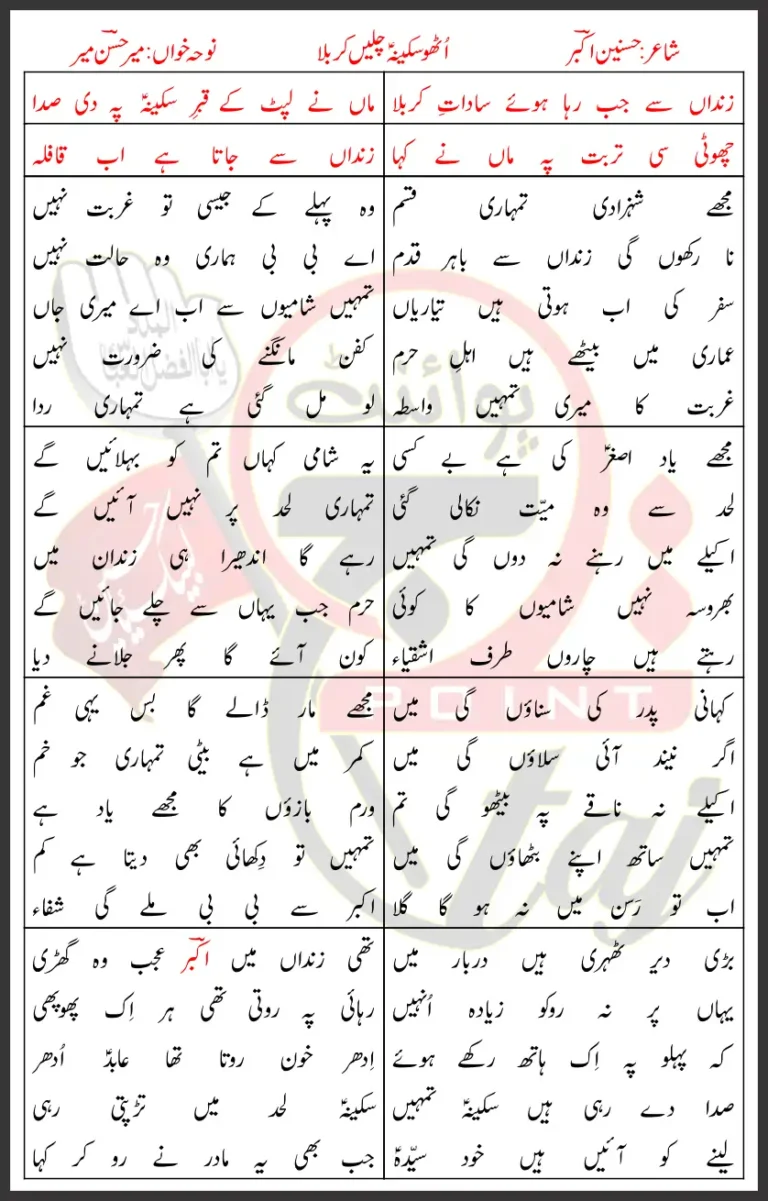 شاعر: حسنین اکبر اُٹھو سکینہؑ چلیں کربلا نوحہ خواں: میر حسن میر
زنداں سے جب رہا ہوئے ساداتِ کربلا ماں نے لپٹ کے قبرِ سکینہؑ پہ دی صدا
چھوٹی سی تربت پہ ماں نے کہا زنداں سے جاتا ہے اب قافلہ
مجھے شہزادی تمہاری قسم
نا رکھوں گی زنداں سے باہر قدم
سفر کی اب ہوتی ہیں تیاریاں
عماری میں بیٹھے ہیں اہلِ حرم
غربت کا میری تمہیں واسطہ
وہ پہلے کے جیسی تو غربت نہیں
اے بی بی ہماری وہ حالت نہیں
تمہیں شامیوں سے اب اے میری جاں
کفن مانگنے کی ضرورت نہیں
لو مل گئی ہے تمہاری ردا
مجھے یاد اصغرؑ کی ہے بے کسی
لحد سے وہ میّت نکالی گئی
اکیلے میں رہنے نہ دوں گی تمہیں
بھروسہ نہیں شامیوں کا کوئی
رہتے ہیں چاروں طرف اشقیاء
یہ شامی کہاں تم کو بہلائیں گے
تمہاری لحد پر نہیں آئیں گے
رہے گا اندھیرا ہی زندان میں
حرم جب یہاں سے چلے جائیں گے
کون آئے گا پھر جلانے دیا
کہانی پدر کی سناؤں گی میں
اگر نیند آئی سلاؤں گی میں
اکیلے نہ ناقے پہ بیٹھو گی تم
تمہیں ساتھ اپنے بٹھاؤں گی میں
اب تو رَسن میں نہ ہو گا گلا
مجھے مار ڈالے گا بس یہی غم
کمر میں ہے بیٹی تمہاری جو خم
ورم بازؤں کا مجھے یاد ہے
تمہیں تو دِکھائی بھی دیتا ہے کم
اکبر سے بی بی ملے گی شفاء
بڑی دیر ٹھہری ہیں دربار میں
یہاں پر نہ روکو زیادہ اُنہیں
کہ پہلو پہ اِک ہاتھ رکھے ہوئے
صدا دے رہی ہیں سکینہؑ تمہیں
لینے کو آئیں ہیں خود سیّدہؑ
تھی زنداں میں اکبر عجب وہ گھڑی
رہائی پہ روتی تھی ہر اِک پھوپھی
اِدھر خون روتا تھا عابدؑ اُدھر
سکینہؑ لحد میں تڑپتی رہی
جب بھی یہ مادر نے رو کر کہا
پوائنٹ
POINT
taj